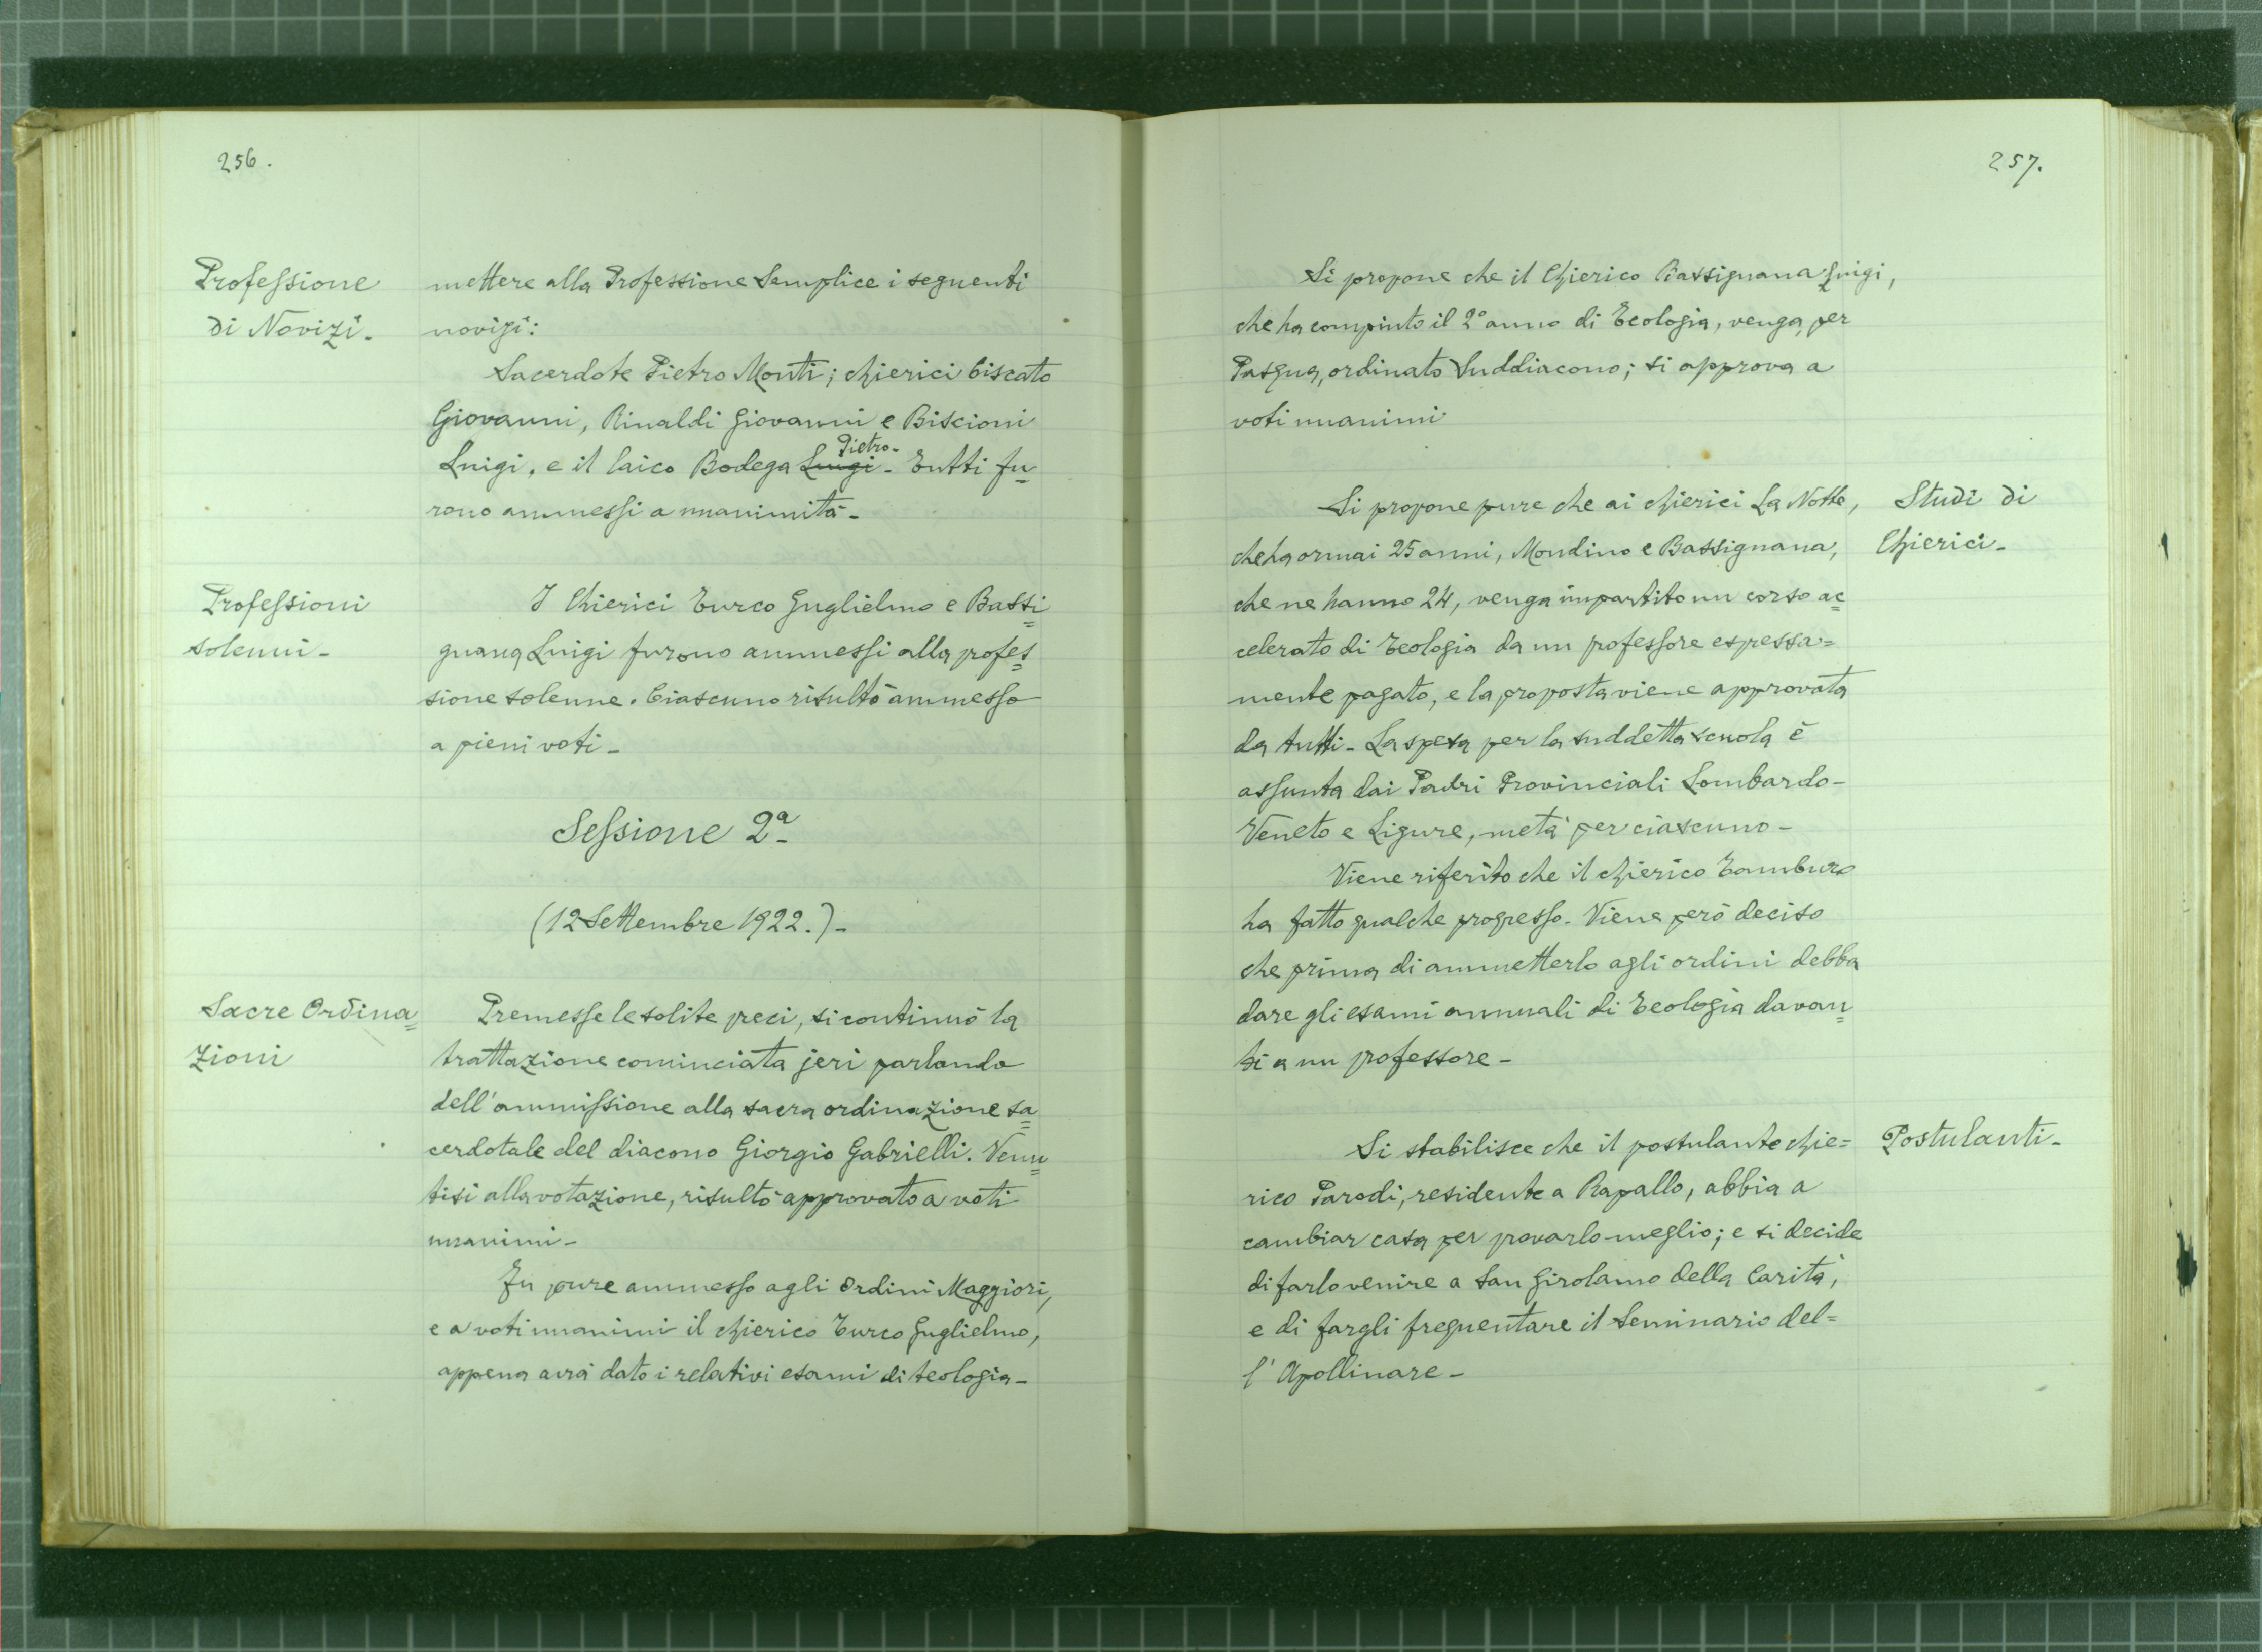 256.
Professione
di Novizi.
mettere alla Professione Semplice i seguenti
novizi:
Sacerdote Pietro Monti; chierici Ciscato
Giovanni, Rinaldi Giovanni e Biscioni
Luigi, e il laico Bodega Luigi Pietro - Tutti fu=
rono ammessi a unanimità -
Professioni
solenni -
I Chierici Turco Guglielmo e Bassi=
gnana Luigi furono ammessi alla profes=
sione solenne. Ciascuno risultò ammesso
a pieni voti -
Sessione 2ª
(12 Settembre 1922.) -
Sacre Ordina=
zioni
Premesse le solite preci, si continuò la
trattazione cominciata jeri parlando
dell'ammissione alla sacra ordinazione sa=
cerdotale del diacono Giorgio Gabrielli. Venu=
tisi alla votazione, risultò approvato a voti
unanimi -
Fu pure ammesso agli Ordini Maggiori,
e a voti unanimi il chierico Turco Guglielmo,
appena avrà dato i relativi esami di teologia -
257.
Si propone che il Chierico Bassignana Luigi,
che ha compiuto il 2º anno di Teologia, venga, per
Pasqua, ordinato Suddiacono; si approva a
voti unanimi
Studi di
Chierici -
Si propone pure che ai chierici La Notte,
che ha ormai 25 anni, Mondino e Bassignana,
che ne hanno 24, venga impartito un corso ac=
celerato di Teologia da un professore espressa=
mente pagato, e la proposta viene approvata
da tutti - La spesa per la suddetta scuola è
assunta dai Padri Provinciali Lombardo-
Veneto e Ligure, metà per ciascuno -
Viene riferito che il chierico Tamburo
ha fatto qualche progresso - Viene però deciso
che prima di ammetterlo agli ordini debba
dare gli esami annuali di Teologia davan=
ti a un professore -
Postulanti -
Si stabilisce che il postulante chie=
rico Parodi, residente a Rapallo, abbia a
cambiar casa per provarlo meglio; e si decide
di farlo venire a San Girolamo della Carità,
e di fargli frequentare il Seminario del=
l'Apollinare -